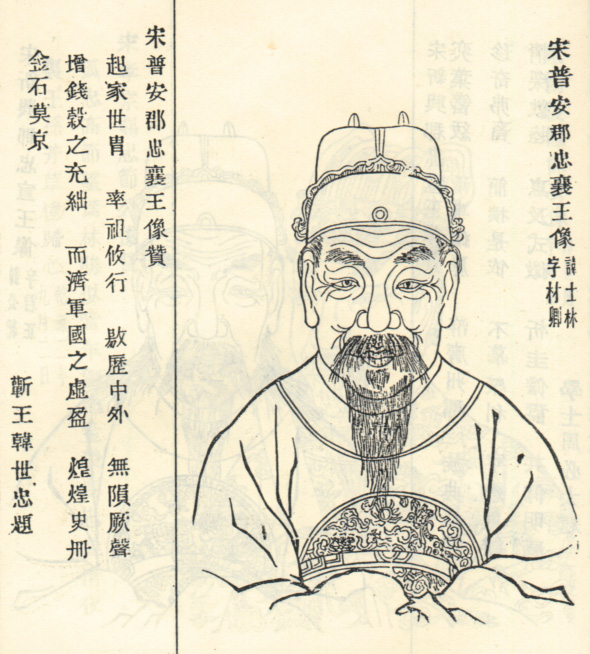 宋普安郡忠襄王像 諱士林
字材卿
宋普安郡忠襄王像贊
起家世胄 率祖攸行 敭歷中外 無隕厥聲
增錢穀之充絀 而濟軍國之虛盈 煌煌史冊
金石莫京
靳王韓世忠題